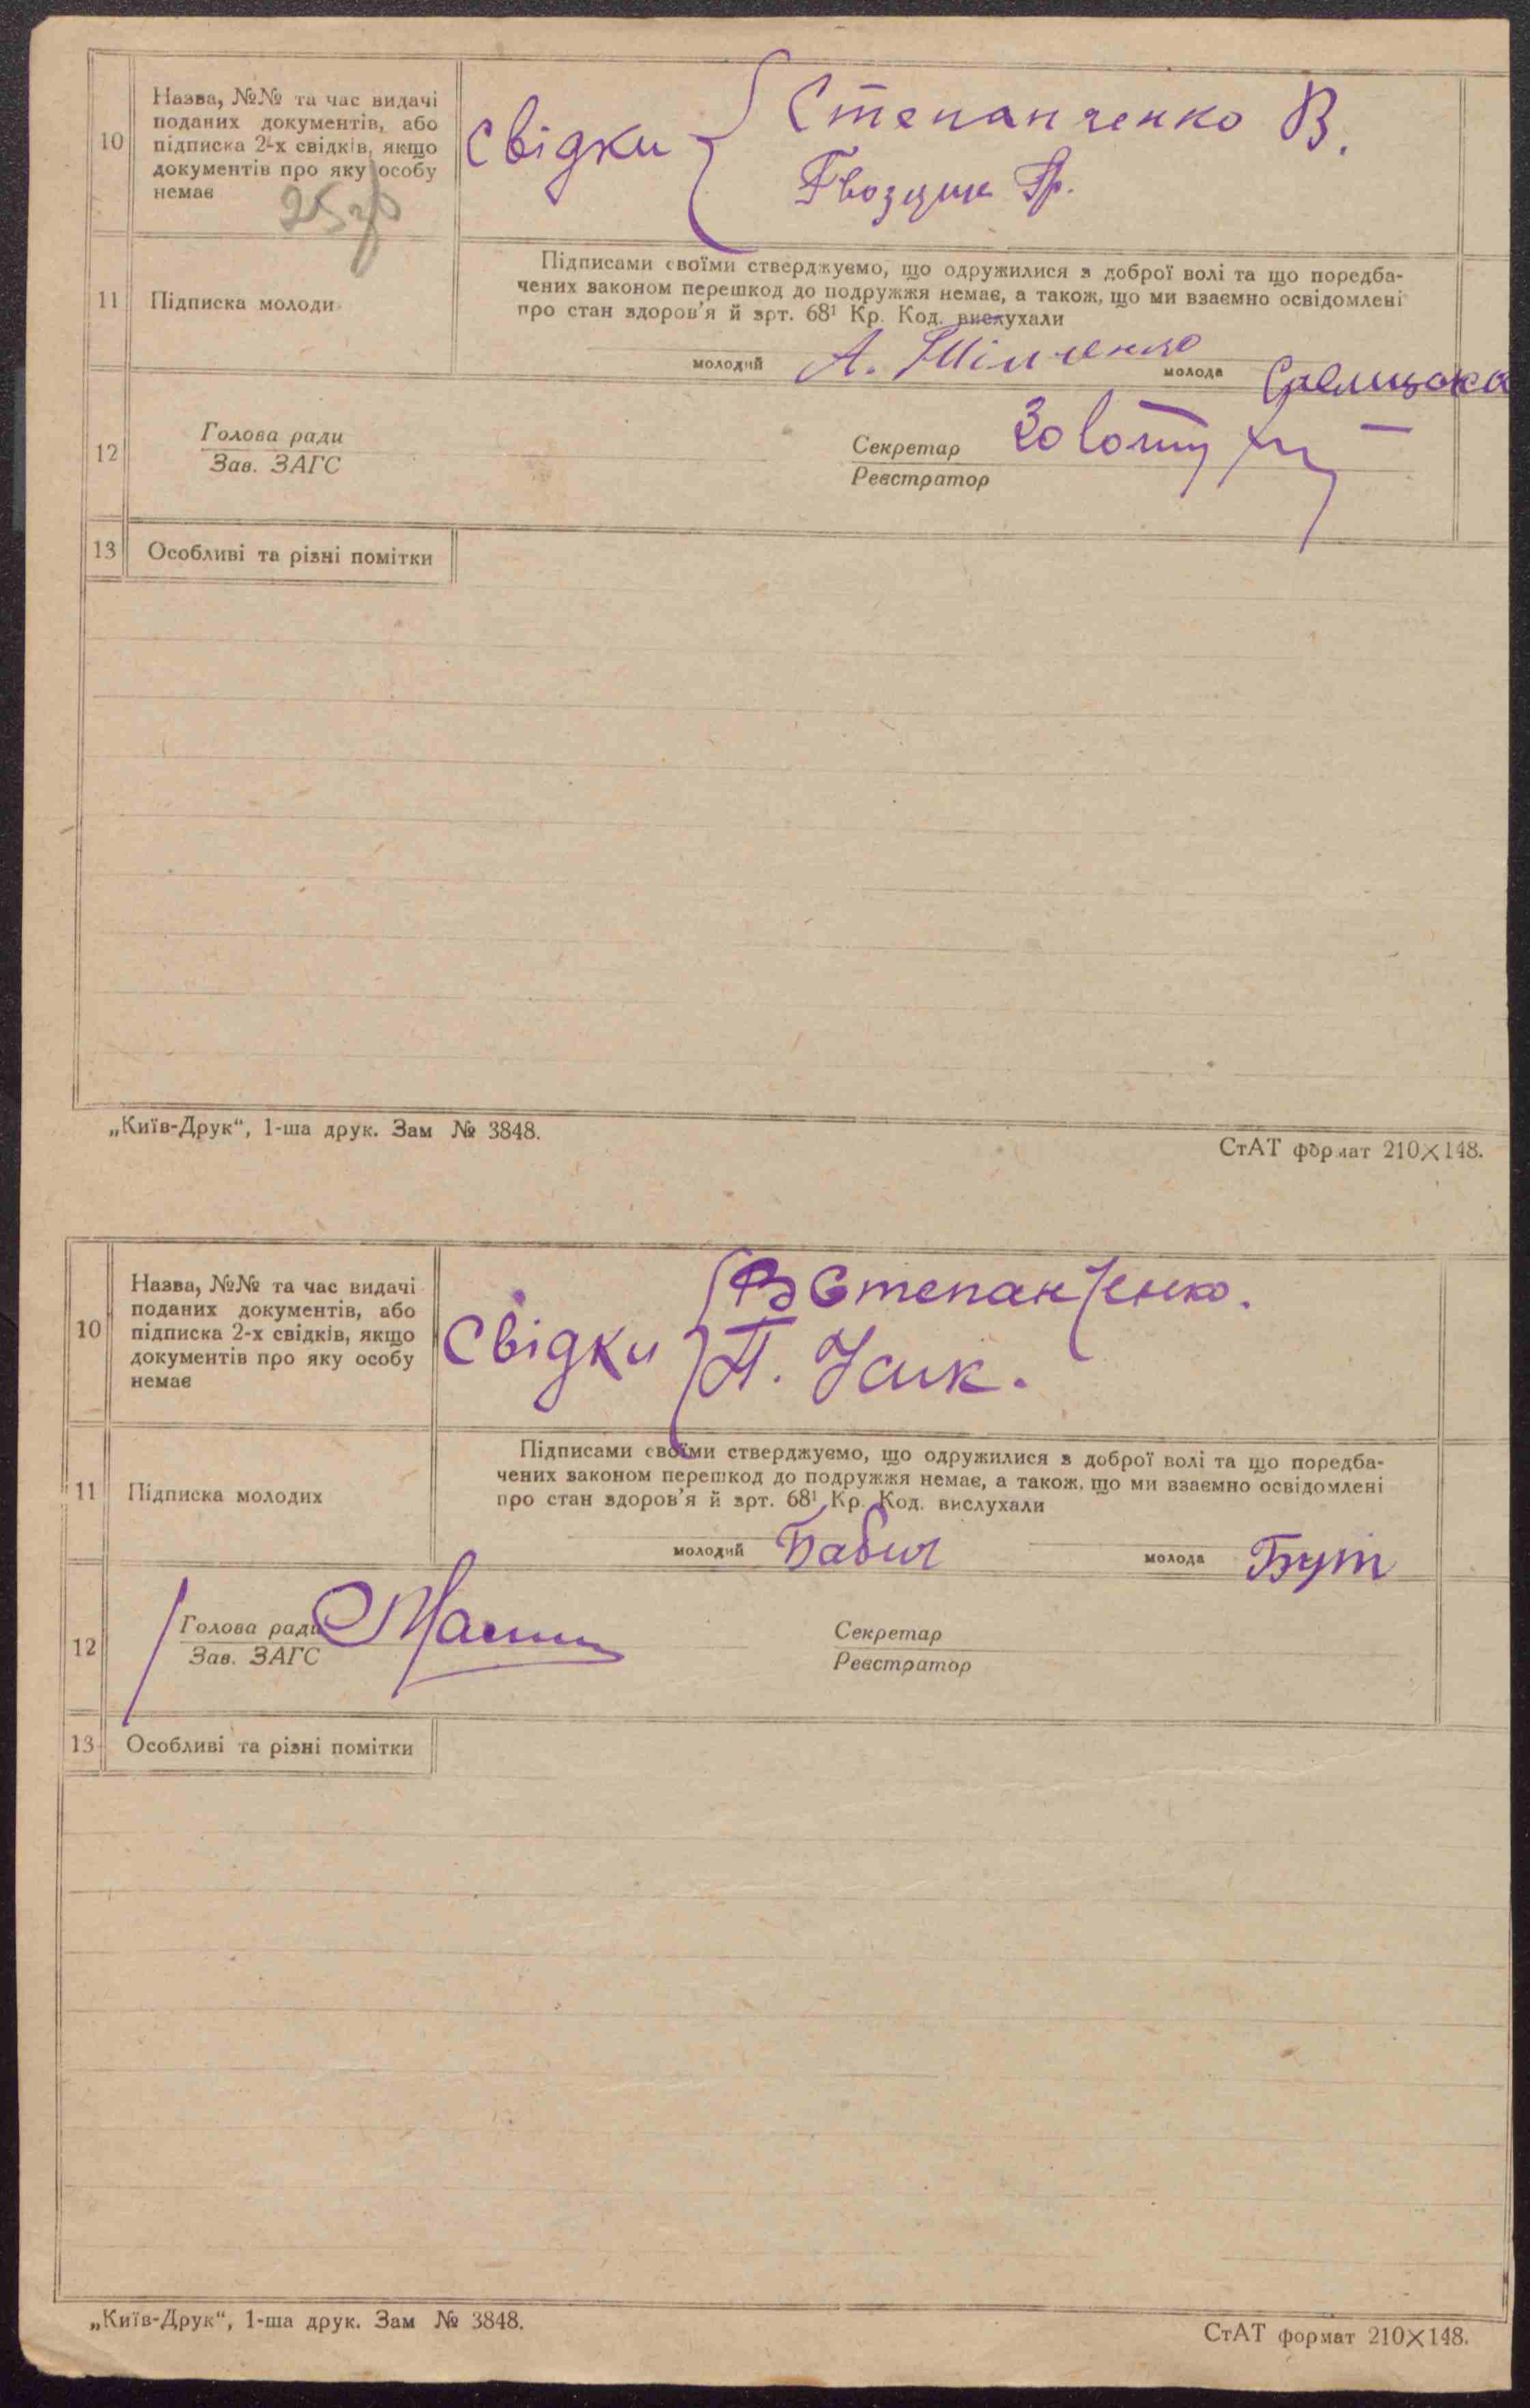 10
Назва, №№ та час видачі
поданих документів, або
підписка 2-х свідків, якщо
документів про яку особу
немає
свідки
Степанченко В.
Гвоздик Гр.
11
Підписка молоди
Підписами своїми стверджуємо, що одружилися з доброї волі та що поредба-
чених законом перешкод до подружжя немає, а також, що ми взаємно освідомлені
про стан здоров'я й зрт. 68¹ Кр. Код. вислухали
молодий А.
молода
12
Голова ради
Зав. ЗАГС
Секретар
Реєстратор
13
Особливі та різні помітки
„Київ-Друк“, 1-ша друк. Зам № 3848.
СтАТ формат 210×148.
10
Назва, №№ та час видачі
поданих документів, або
підписка 2-х свідків, якщо
документів про яку особу
немає
Свідки
В Степанченко.
П. Усик.
11
Підписка молодих
Підписами своїми стверджуємо, що одружилися з доброї волі та що поредба-
чених законом перешкод до подружжя немає, а також, що ми взаємно освідомлені
про стан здоров'я й зрт. 68¹ Кр. Код. вислухали
молодий Бабич
молода Бут
12
Голова ради
Зав. ЗАГС
Секретар
Реєстратор
13
Особливі та різні помітки
„Київ-Друк“, 1-ша друк. Зам № 3848.
СтАТ формат 210×148.